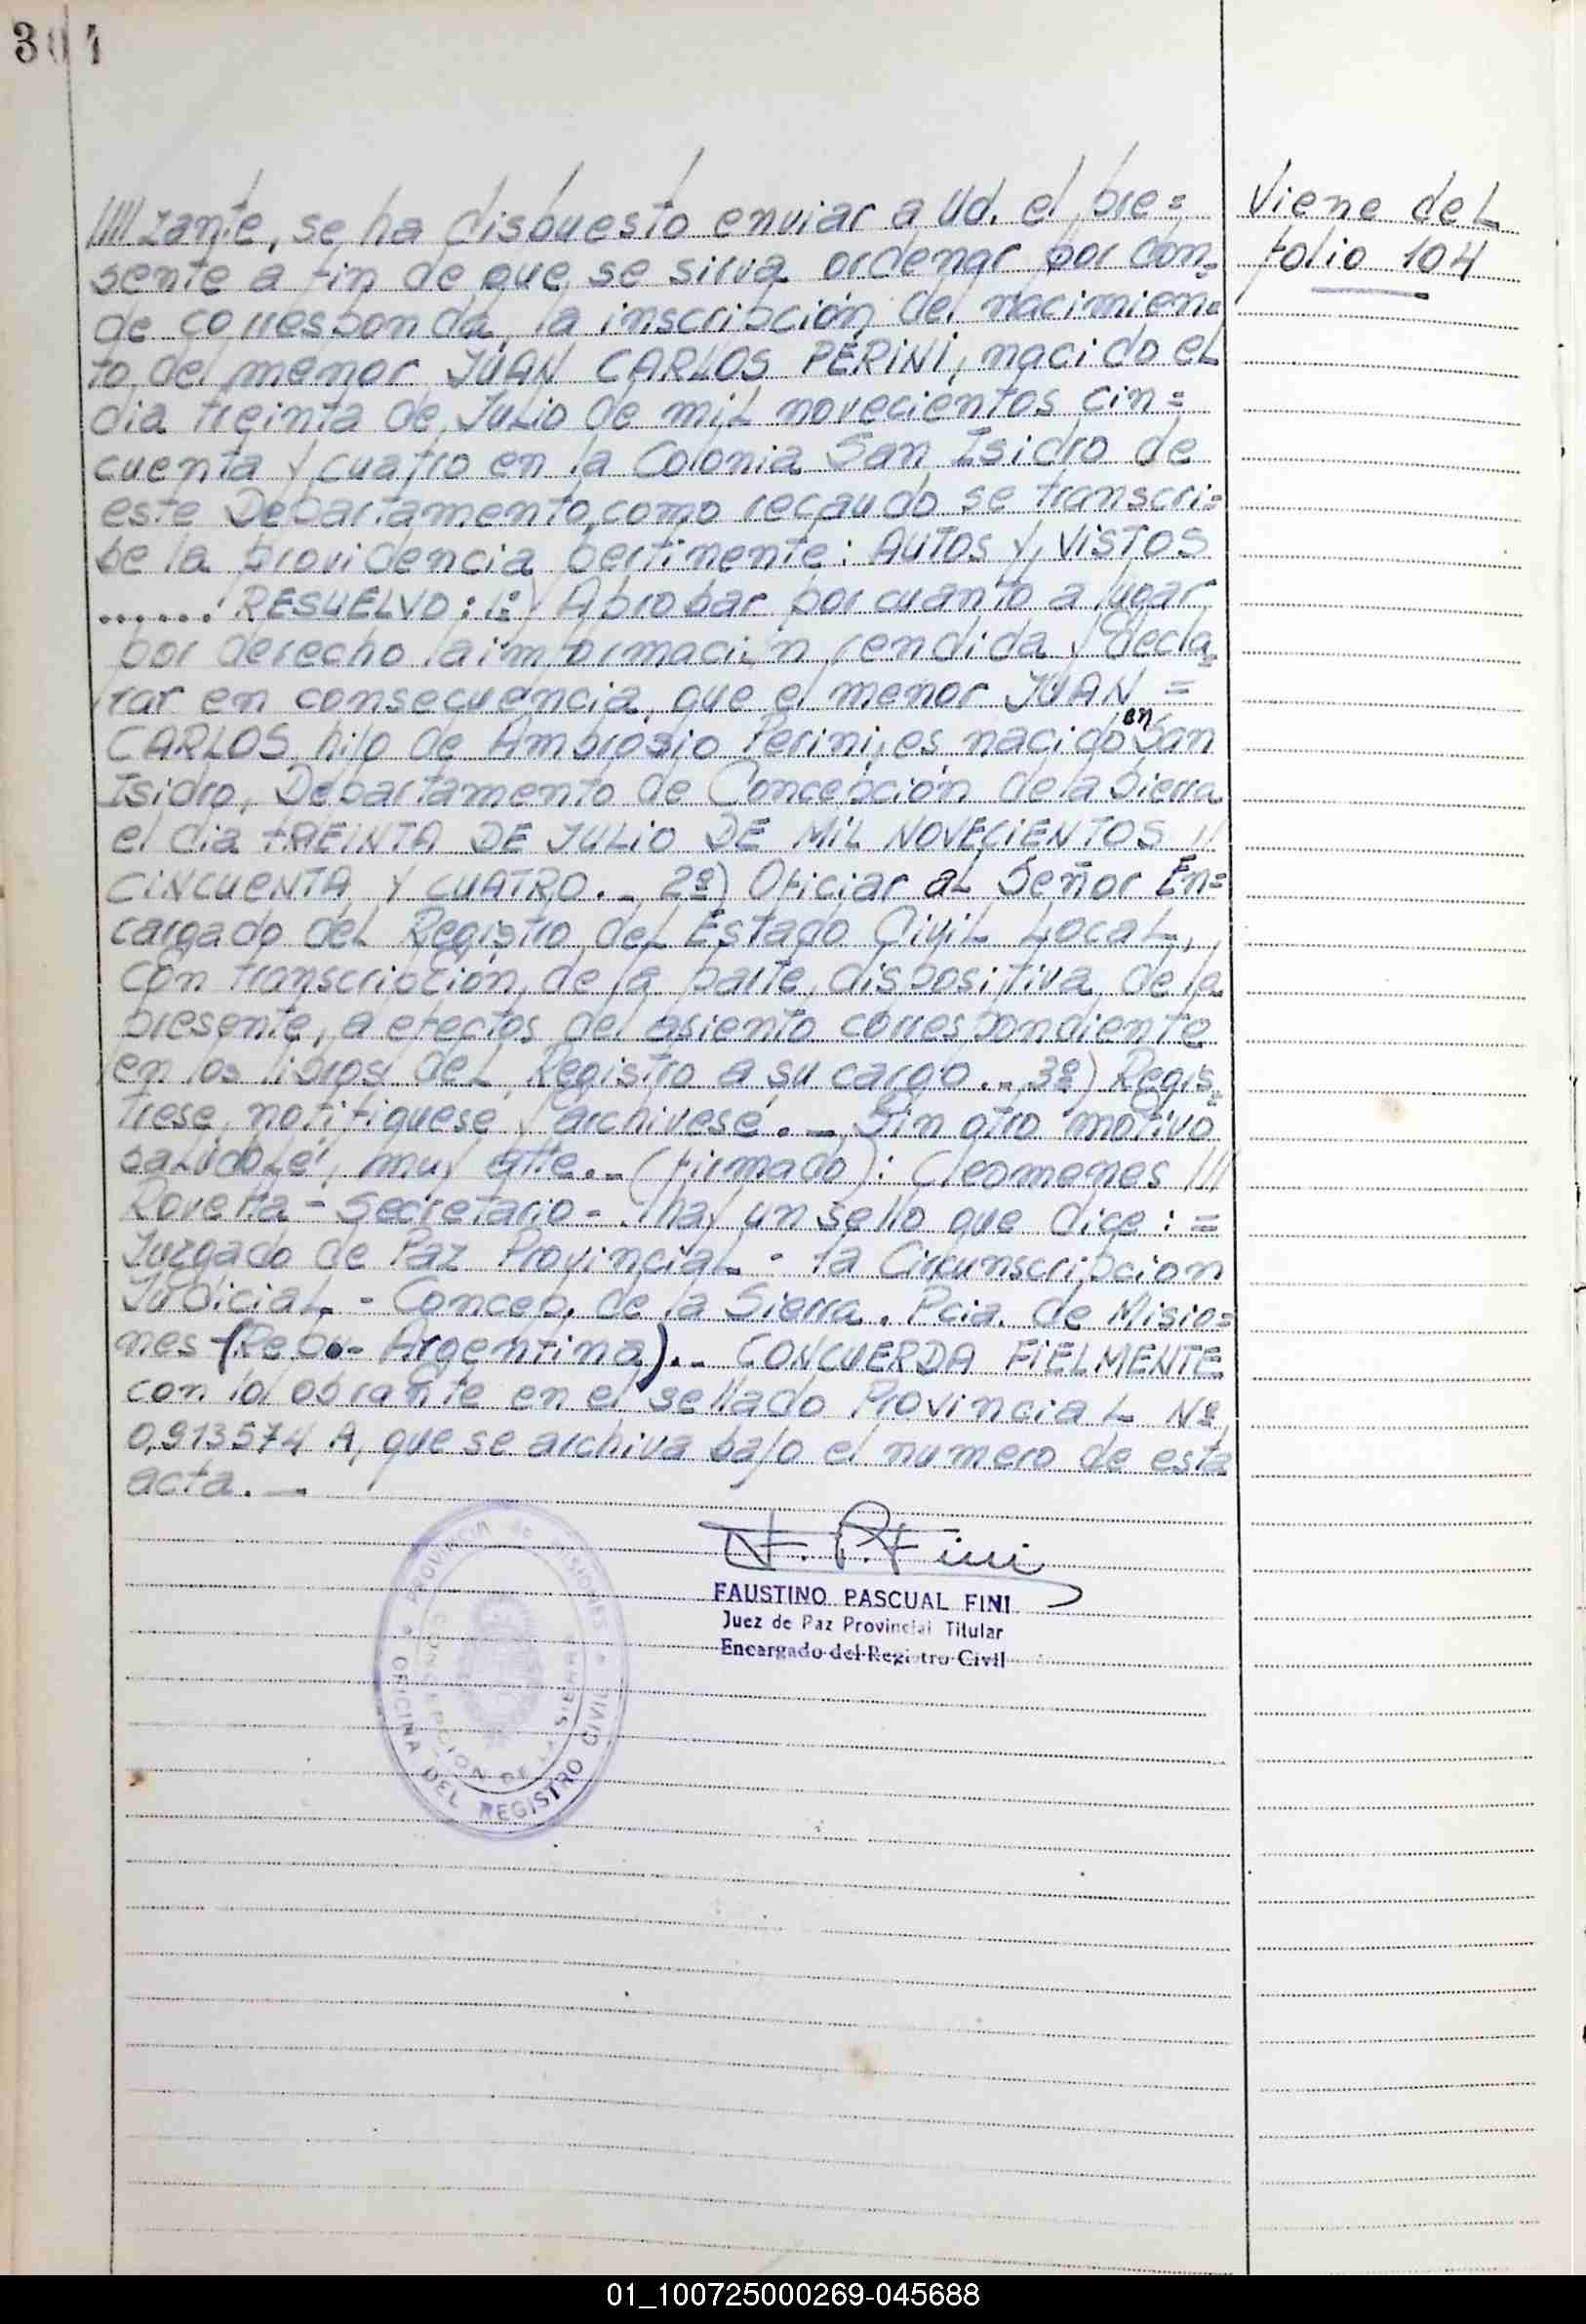 304
Viene del
folio 104
///zante, se ha dispuesto enviar a Ud. el pre=
sente a fin de que se sirva ordenar por don=
de corresponda, la inscripción del nacimien=
to del menor JUAN CARLOS PERINI, nacido el
dia treinta de Julio de mil novecientos cin=
cuenta y cuatro en la Colonia San Isidro de
este Departamento, como recaudo se transcri=
be la providencia pertinente: AUTOS Y, VISTOS
....... RESUELVO: 1º) Aprobar por cuanto a lugar
por derecho la información rendida y decla=
rar en consecuencia, que el menor JUAN =
CARLOS hijo de Ambrosio Perini, es nacido en San
Isidro, Departamento de Concepción de la Sierra
el dia TREINTA DE JULIO DE MIL NOVECIENTOS //
CINCUENTA Y CUATRO._ 2º) Oficiar al Señor En=
cargado del Registro del Estado Civil Local,
con transcripcion de la parte dispositiva de la
presente, a efectos del asiento correspondiente
en los libros del Registro a su cargo._ 3º) Regis=
trese, notifiquese y archivese._ Sin otro motivo
saludole, muy atte._ (firmado): Cleomenes ///
Rovetta - Secretario - hay un sello que dice: =
Juzgado de Paz Provincial - 1a Circunscripcion
Judicial - Concep. de la Sierra. Pcia. de Misio=
nes (Repu. Argentina)._ CONCUERDA FIELMENTE
con lo obrante en el sellado Provincial Nº
0,913574 A, que se archiva bajo el numero de esta
acta._
F. P. Fini
FAUSTINO PASCUAL FINI
Juez de Paz Provincial Titular
Encargado del Registro Civil
PROVINCIA de MISIONES
CONCEPCION DE LA SIERRA
OFICINA DEL REGISTRO CIVIL
01_100725000269-045688